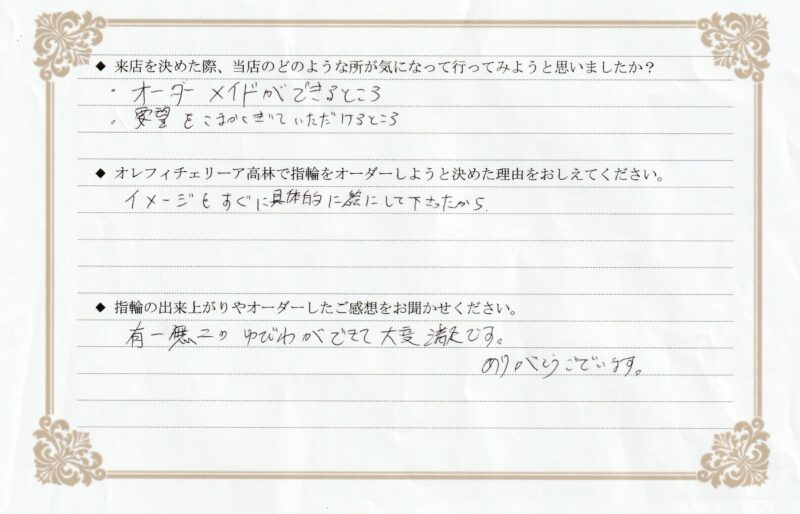 ◆ 来店を決めた際、当店のどのような所が気になって行ってみようと思いましたか？
・オーダーメイドができるところ
。要望をこまかくきいていただけるところ
◆ オレフィチェリーア高林で指輪をオーダーしようと決めた理由をおしえてください。
イメージをすぐに具体的に絵にして下さったから
◆ 指輪の出来上がりやオーダーしたご感想をお聞かせください。
有一無二のゆびわができて大変満足です。
ありがとうございます。